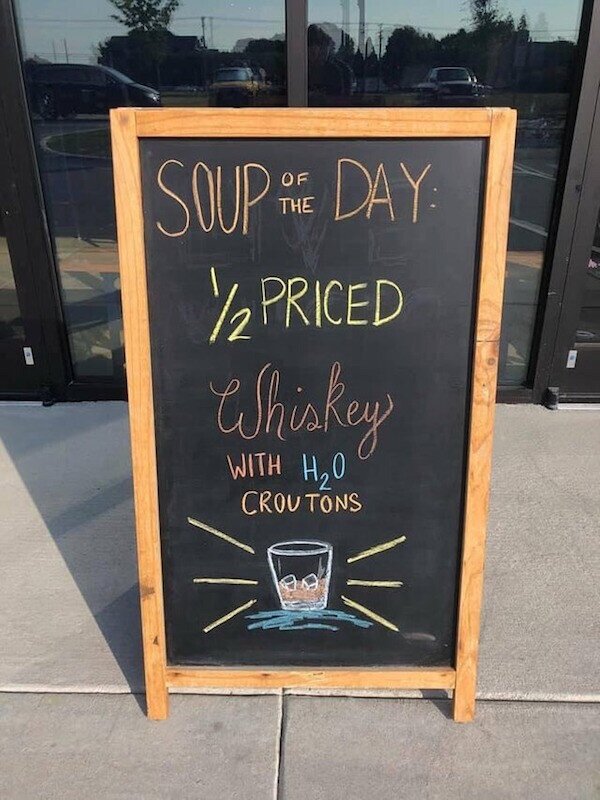 SOUP OF THE DAY:
½ PRICED
Whiskey
WITH H₂O
CROUTONS